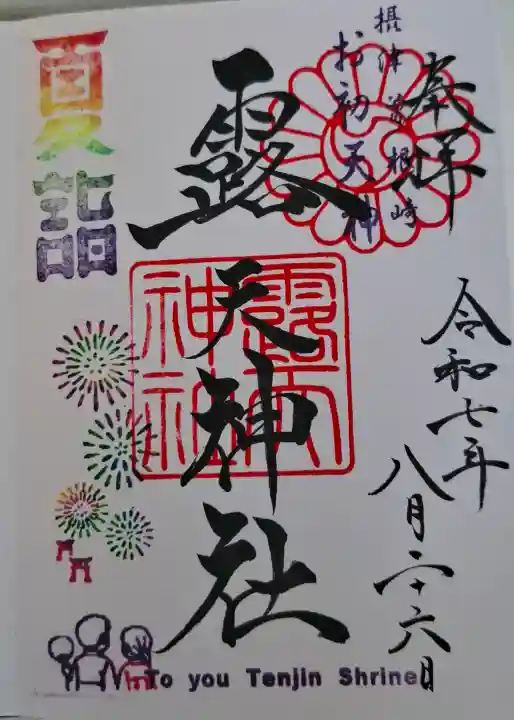 奉拝
摂津曽根崎
お初天神
露天神社
露天
神社
令和七年
八月二十六日
夏詣
To you Tenjin Shrine